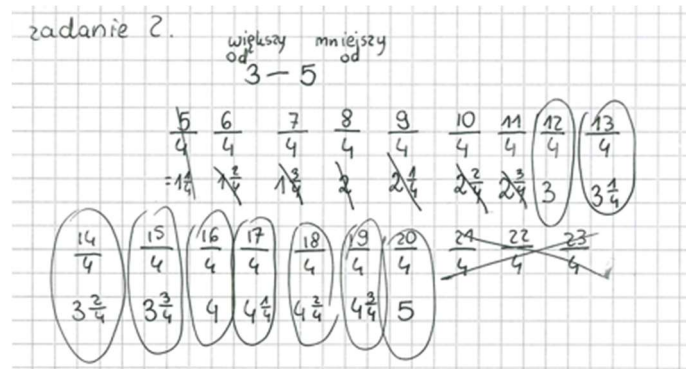 zadanie 2.
większy mniejszy
od od
3 – 5
5/4 6/4 7/4 8/4 9/4 10/4 11/4 12/4 13/4
=1 1/4 1 2/4 1 3/4 2 2 1/4 2 2/4 2 3/4 3 3 1/4
14/4 15/4 16/4 17/4 18/4 19/4 20/4 21/4 22/4 23/4
3 2/4 3 3/4 4 4 1/4 4 2/4 4 3/4 5